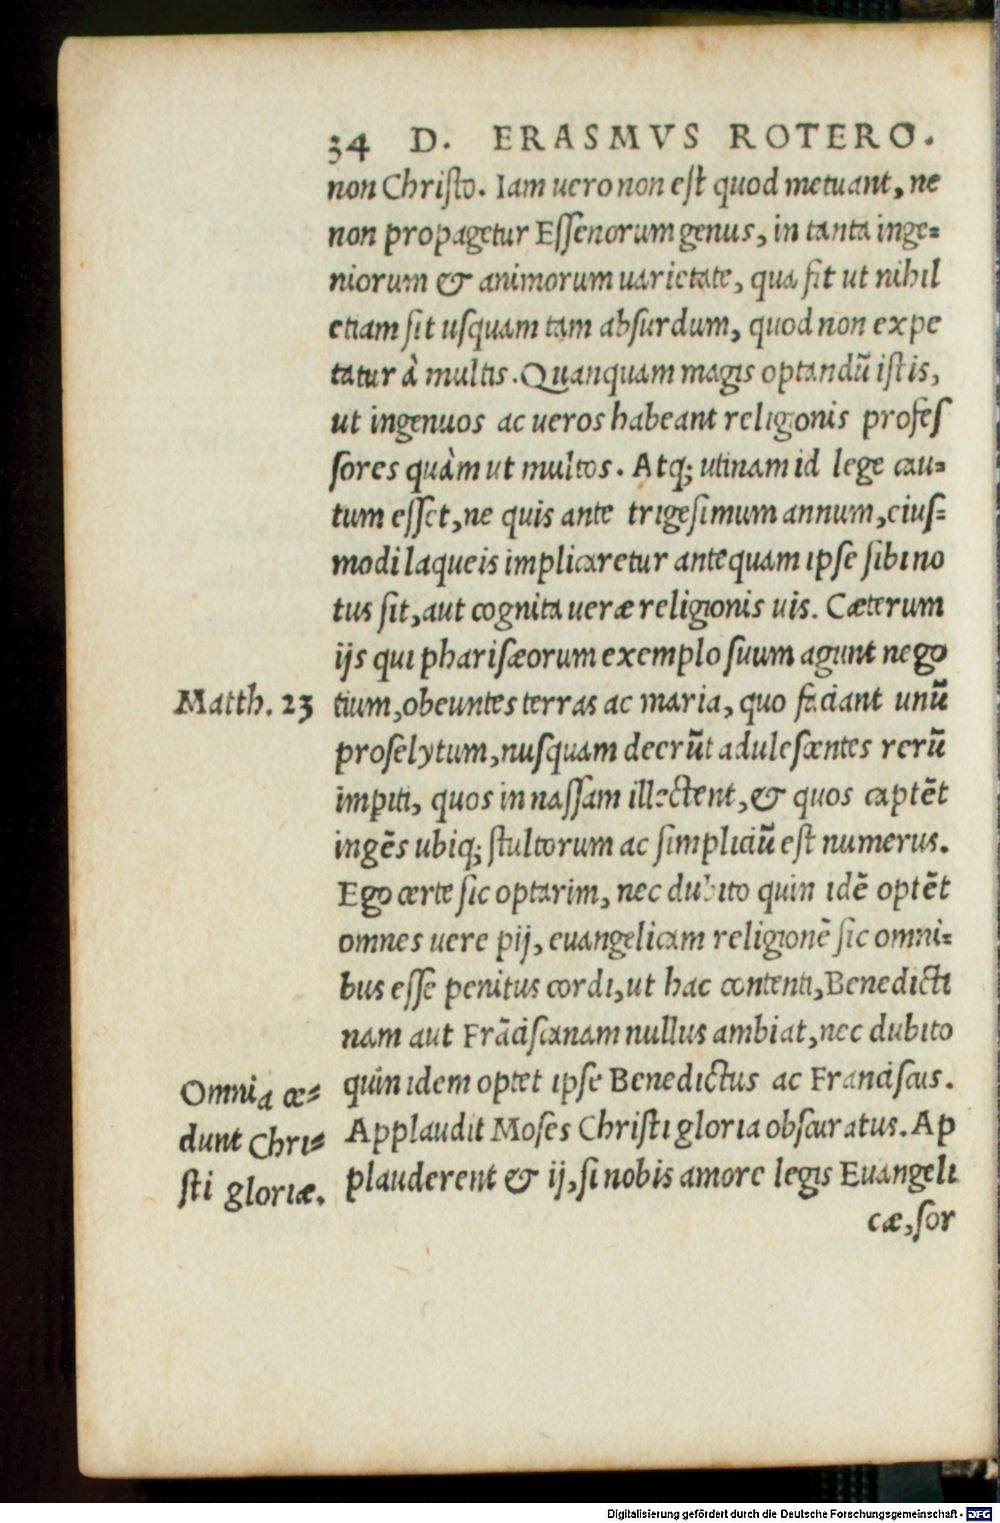 34 D. ERASMVS ROTERO.
non Christo. Iam uero non est quod metuant, ne
non propagetur Essenorum genus, in tanta inge=
niorum & animorum uarietate, qua fit ut nihil
etiam sit usquam tam absurdum, quod non expe
tatur à multis. Quanquam magis optandū istis,
ut ingenuos ac ueros habeant religionis profes
sores quàm ut multos. Atq; utinam id lege cau=
tum esset, ne quis ante trigesimum annum, eius=
modi laqueis implicaretur antequam ipse sibi no
tus sit, aut cognita ueræ religionis uis. Cæterum
ijs qui pharisæorum exemplo suum agunt nego
Matth. 23
tium, obeuntes terras ac maria, quo faciant unū
proselytum, nusquam deerūt adulescentes rerū
impiti, quos in nassam illectent, & quos captēt
ingēs ubiq; stultorum ac simpliciū est numerus.
Ego certe sic optarim, nec dubito quin idē optēt
omnes uere pij, euangelicam religionē sic omni=
bus esse penitus cordi, ut hac contenti, Benedicti
nam aut Frāciscanam nullus ambiat, nec dubito
quin idem optet ipse Benedictus ac Franciscus.
Omnia ce=
dunt Chri=
sti gloriæ.
Applaudit Moses Christi gloria obscuratus. Ap
plauderent & ij, si nobis amore legis Euangeli
cæ, sor
Digitalisierung gefördert durch die Deutsche Forschungsgemeinschaft - DFG